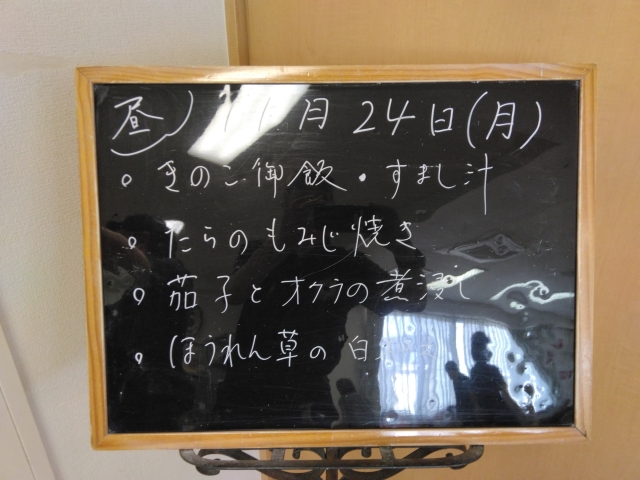 昼 11月24日(月)
。きのこ御飯・すまし汁
。たらのもみじ焼き
。茄子とオクラの煮浸し
。ほうれん草の白